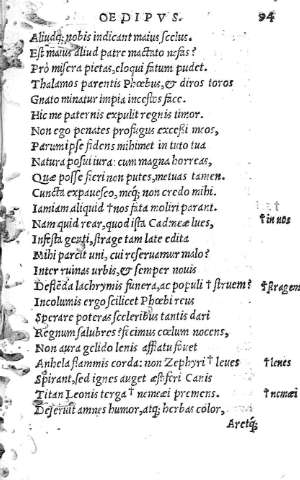 OEDIPVS. 94
Aliudq; nobis indicant maius scelus.
Est maius aliud patre mactato nefas?
Prò misera pietas, eloqui fatum pudet.
Thalamos parentis Phœbus, & diros toros
Gnato minatur impia incestos face.
Hic me paternis expulit regnis timor.
Non ego penates profugus excessi meos,
Parum ipse fidens mihimet in tuto tua
Natura posui iura: cum magna horreas,
Quæ posse fieri non putes, metuas tamen.
Cuncta expauesco, meq; non credo mihi.
Iamiam aliquid † nos fata moliri parant. † in nos
Nam quid rear, quod ista Cadmeæ lues,
Infesta genti, strage tam late edita
Mihi parcit uni, cui reseruamur malo?
Inter ruinas urbis, & semper nouis
Deflēda lachrymis funera, ac populi † struem? † stragem
Incolumis ergo scilicet Phœbi reus
Sperare poteras sceleribus tantis dari
Regnum salubre? fecimus cœlum nocens,
Non aura gelido lenis afflatu fouet
Anhela flammis corda: non Zephyri † leues † lenes
Spirant, sed ignes auget æstiferi Canis
Titan Leonis terga † nemæei premens. † nemæi
Deseruit amnes humor, atq; herbas color,
Aretq;